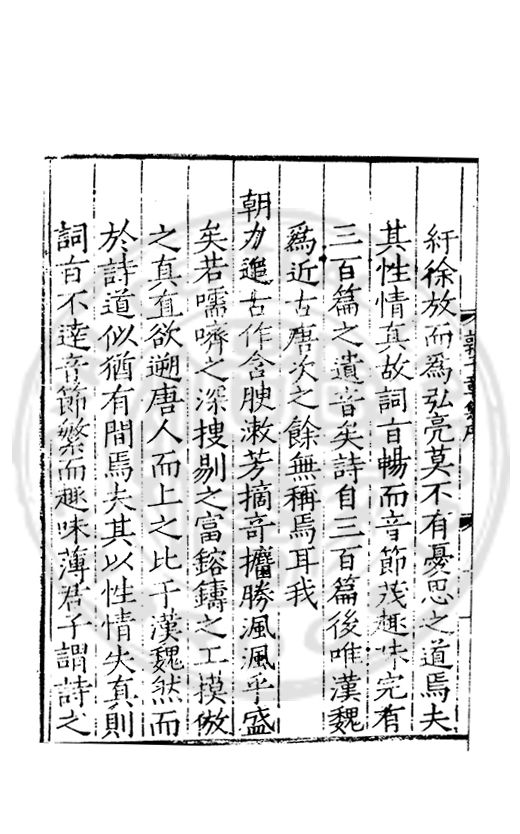 紆徐放而爲弘亮莫不有憂思之道焉夫
其性情真故詞旨暢而音節茂趣味完有
三百篇之遺音矣詩自三百篇後唯漢魏
爲近古唐次之餘無稱焉耳我
朝力追古作含腴漱芳摘奇擷勝渢渢乎盛
矣若嚅嚌之深搜剔之富鎔鑄之工摸倣
之真直欲遡唐人而上之比于漢魏然而
於詩道似猶有間焉夫其以性情失真則
詞旨不達音節繁而趣味薄君子謂詩之